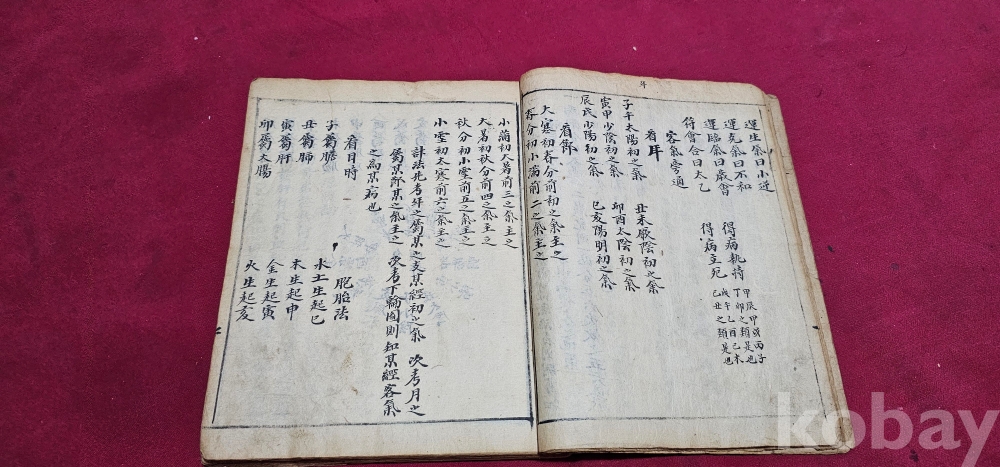 運生氣曰小逆
運克氣曰不和 得病執持 甲辰甲戌丙子
丁卯之類是也
運臨氣曰歲會 得病立死 戊午乙酉己未
己丑之類是也
符會合曰太乙
客氣旁通
看年
子午太陽初之氣 丑未厥陰初之氣
寅申少陰初之氣 卯酉太陰初之氣
辰戌少陽初之氣 巳亥陽明初之氣
看節
大寒初春分前初之氣主之
春分初小滿前二之氣主之
小滿初大暑前三之氣主之
大暑初秋分前四之氣主之
秋分初小雪前五之氣主之
小雪初太寒前六之氣主之
計法先考年之屬某之支某經初之氣 次考月之
屬某節某之氣主之 次考下輪圖則知某經客氣
之為某病也
看日時 胞胎法
子屬膽 水土生起巳
丑屬肺 木生起申
寅屬肝 金生起寅
卯屬大腸 火生起亥
kobay